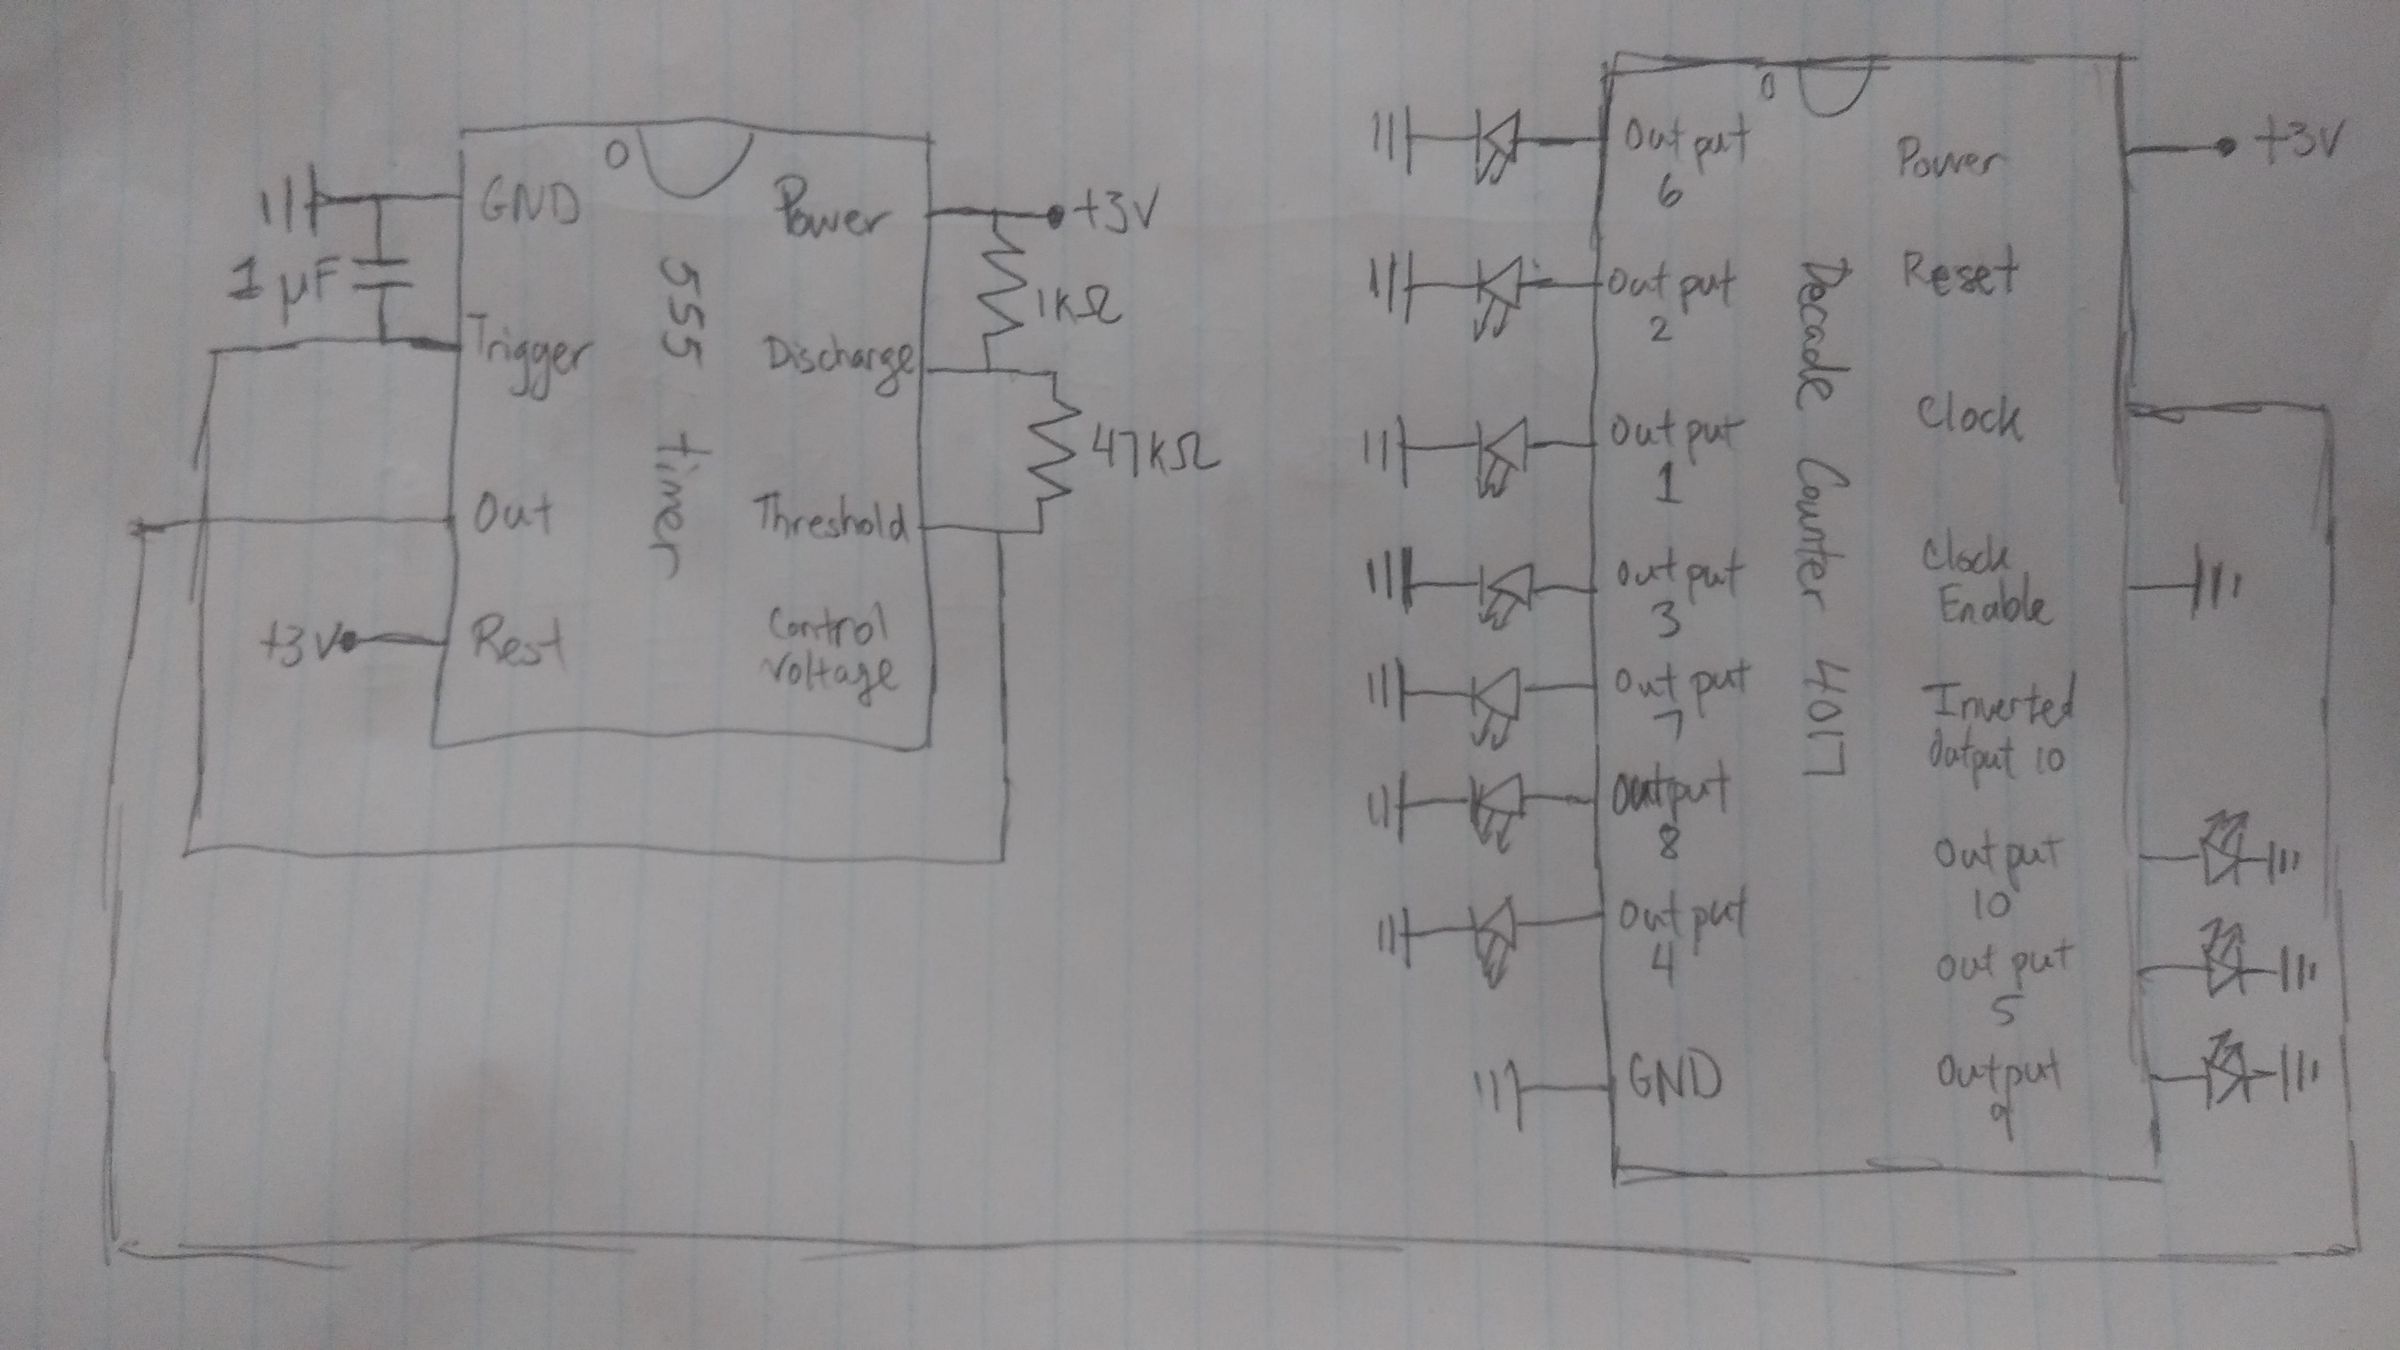 GND
Power
+3V
1 µF
1KΩ
Trigger
Discharge
555 timer
47KΩ
Out
Threshold
+3V
Rest
Control
Voltage
Output
6
Power
+3V
Output
2
Reset
Output
1
Clock
Decade Counter 4017
Output
3
Clock
Enable
Output
7
Inverted
Output 10
Output
8
Output
10
Output
4
Output
5
GND
Output
9